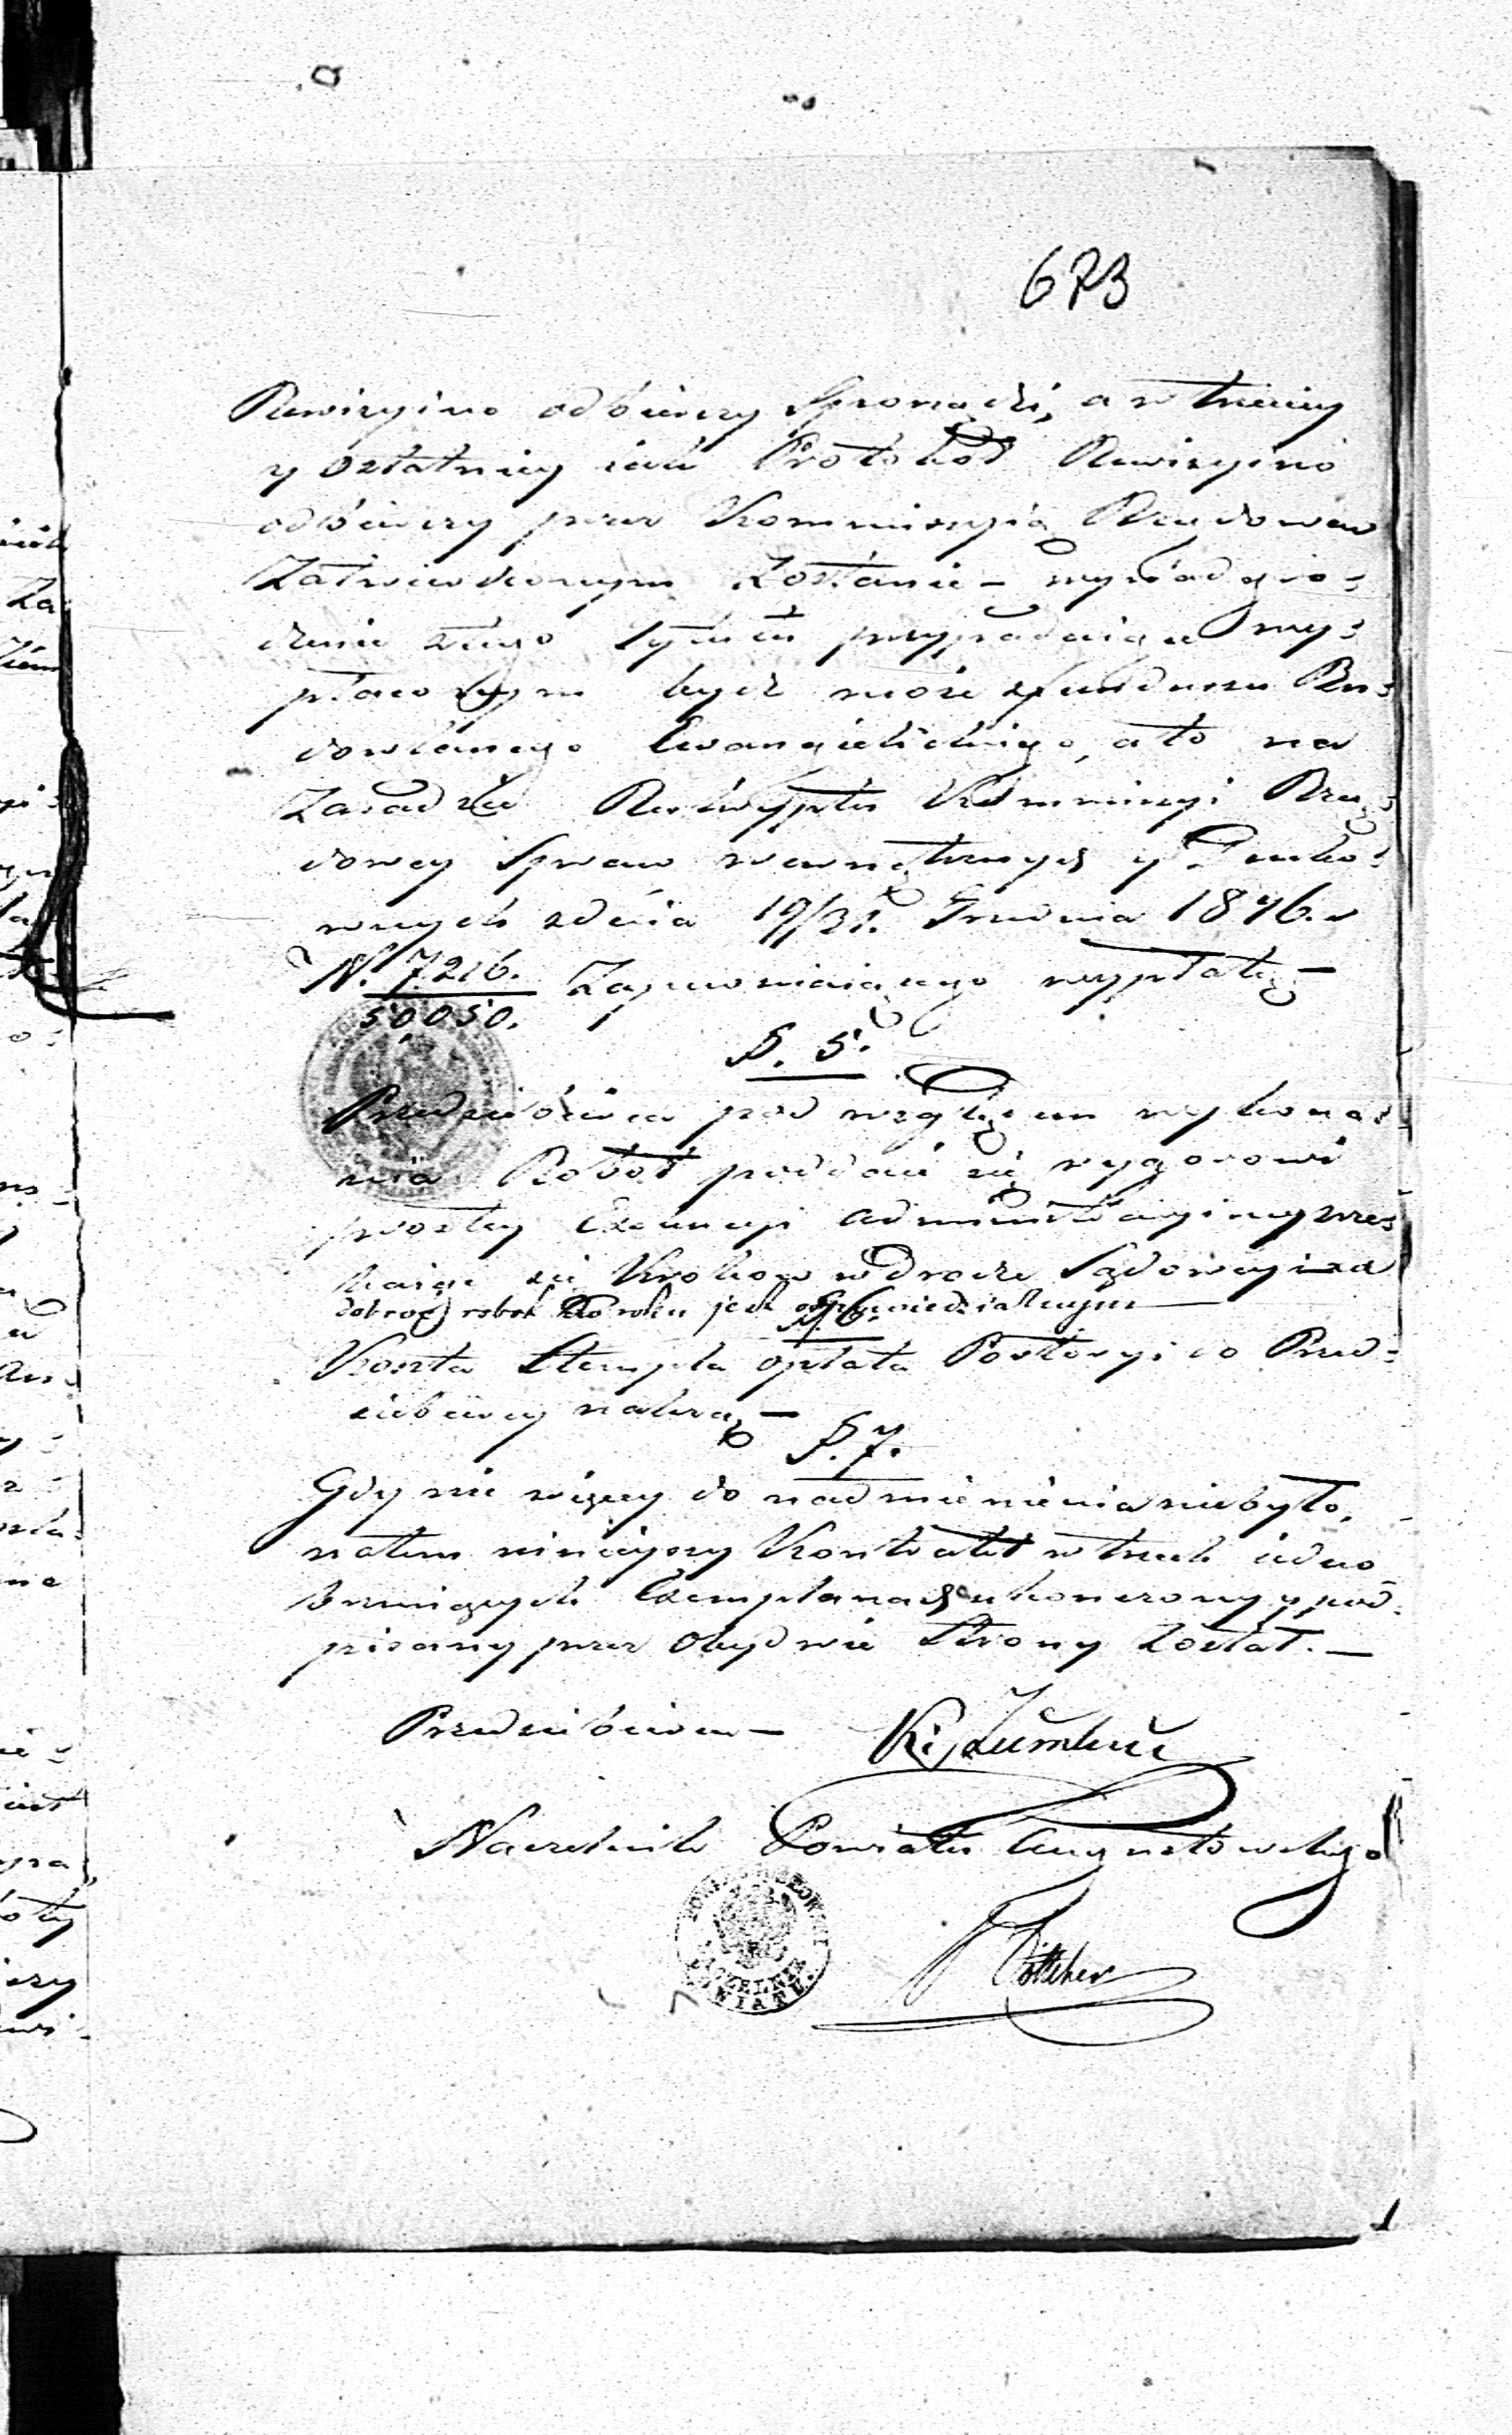 673
Rewizyino odbiorczy sporządzi, a w trzeciey
y ostatniey iak Protokół Rewizyino
odbiorczy przez Kommissyią Rządową
Zatwierdzonym Zostanie – wynadgro-
dzenie z tego tytułu przypadaiące wy-
płaconym bydź może z funduszu Bu-
dowlanego Ewangielickiego, a to na
Zasadzie Reskryptu Kommissyi Rzą-
dowey Spraw wewnętrznych y Ducho-
wnych z dnia 19/31. Grudnia 1846. r
N. 7216.
50050. Zapewniaiącego wypłatę –
§. 5.
Przedsiębiorca pod względem wykona-
nia Robót poddaie się rygorowi
prostey Exekucyi administracyiney zrze-
kaiąc się Kroków w Drodze Sądowey i za
dobroć robót do roku jest odpowiedzialnym
§. 6.
Koszta Stempla opłata Portoryi do Przed-
siębiercy należą –
§. 7.
Gdy nic więcey do nadmienienia niebyło,
zatem ninieyszy Kontrakt w trzech iedno
brzmiących Exemplarzach ukończony y pod-
pisany przez Obydwie Strony Został. –
Przedsiębiorca –
Naczelnik Powiatu Augustowskiego
Böttcher
NACZELNIK
POWIATU